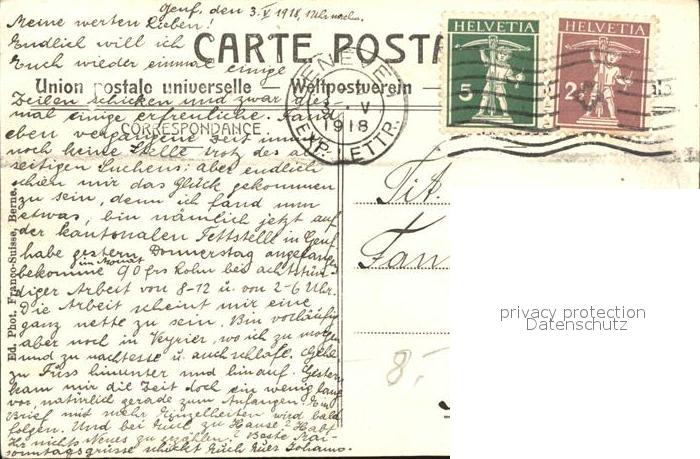 Genf, den 3. V 1918,
Meine werten Lieben!
Endlich will ich
Euch wieder einmal einige
CARTE POSTA
HELVETIA
HELVETIA
5
2
Union postale universelle — Weltpostverein —
GENEVE
V
1918
EXP. LETTR.
Zeilen schicken und zwar dies
mal einige erfreuliche. Fand
CORRESPONDANCE
eben vergangene Zeit immer
noch keine Stelle trotz des all
seitigen Suchens; aber endlich
schien mir das Glück gekommen
zu sein, denn ich fand nun
etwas, bin nämlich jetzt auf
der kantonalen Fettstelle in Genf,
habe gestern Donnerstag angefangen
bekomme im Monat 90 frs Lohn bei achtstün-
diger Arbeit von 8-12 u. von 2-6 Uhr.
Die Arbeit scheint mir eine
ganz nette zu sein. Bin vorläufig
aber noch in Veyrier, wo ich zu morgen
und zu nachtesse u. auch schlafe. Gehe
zu Fuss hinunter und hinauf. Gestern
kam mir die Zeit doch ein wenig lang
vor, natürlich gerade zum Anfangen. Ein
Brief mit mehr Einzelheiten wird bald
folgen. Und bei Euch zu Hause? Habt
Ihr nichts Neues zu erzählen? Beste Mai-
sonntagsgrüsse schickt Euch Euer
Tit.
Fam
8.-
Ed. Phot. Franco-Suisse, Berne.
privacy protection
Datenschutz